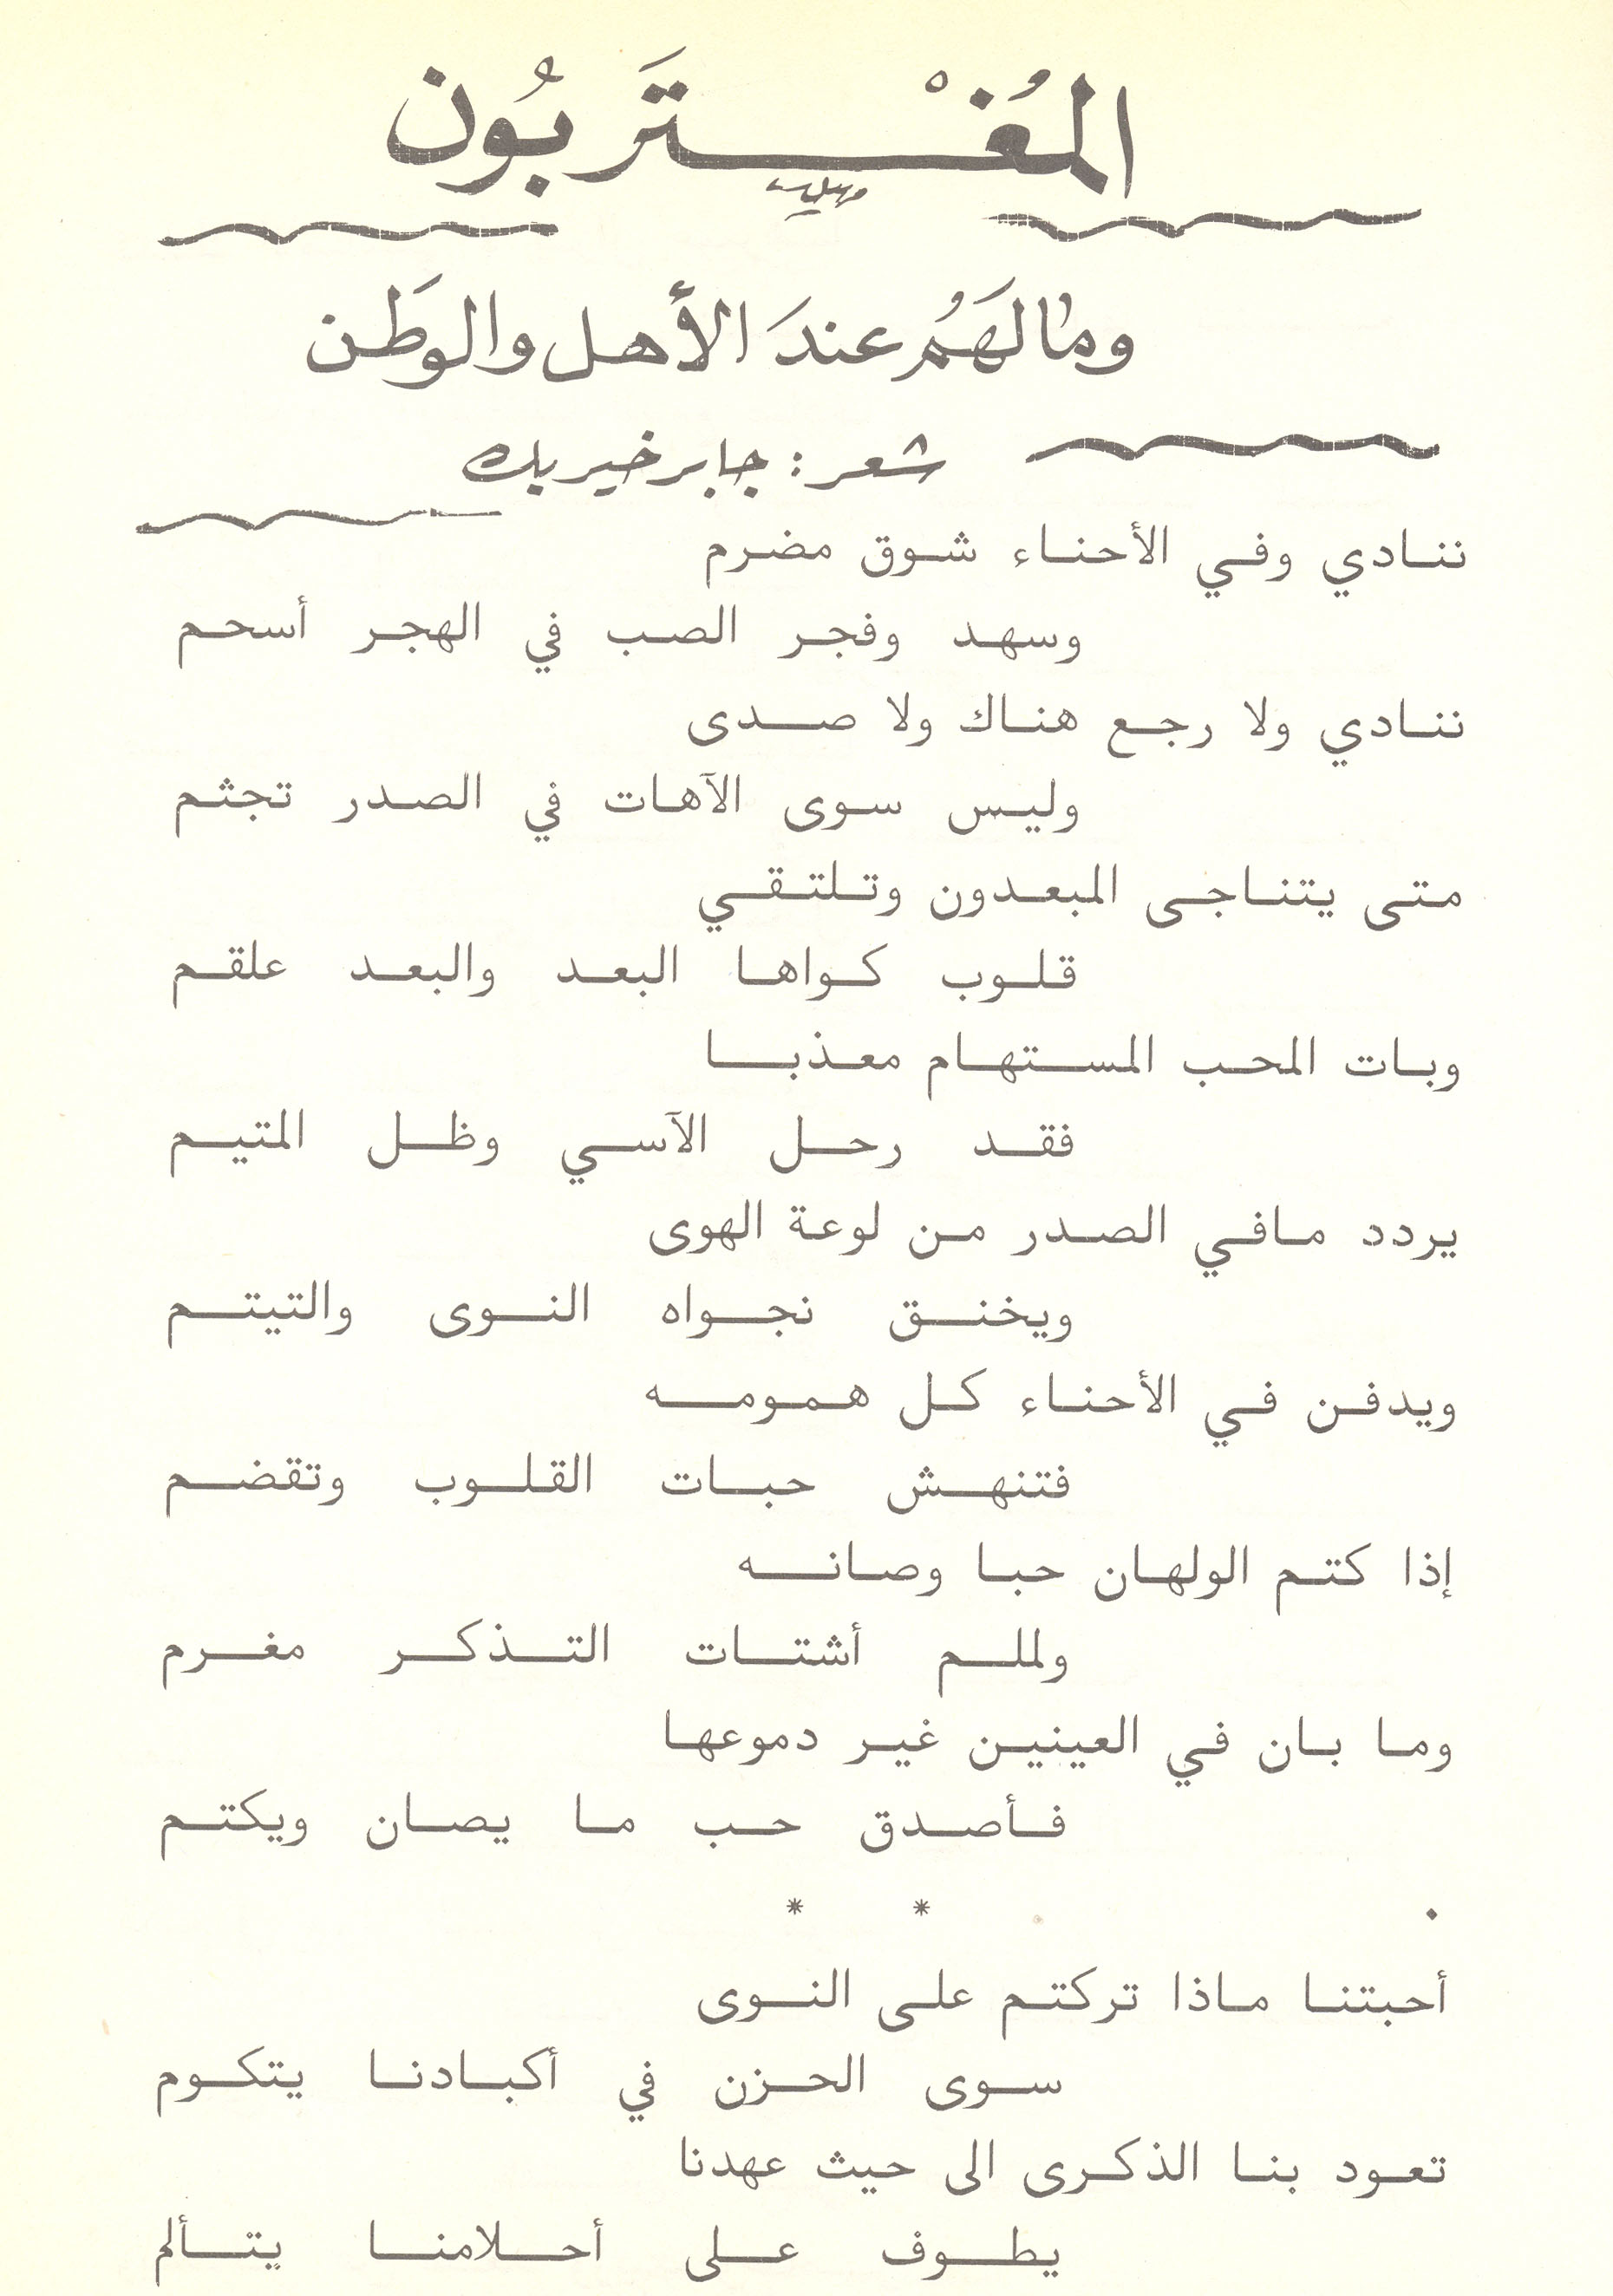 المُغْتَربُون
ومالهَمُ عندَ الأهل والوَطن
شعر : جابر خير بك
ننادي وفي الأحناء شوق مضرم
وسهد وفجر الصب في الهجر أسحم
ننادي ولا رجع هناك ولا صدى
وليس سوى الآهات في الصدر تجثم
متى يتناجى المبعدون وتلتقي
قلوب كواها البعد والبعد علقم
وبات المحب المستهام معذبا
فقد رحل الآسي وظل المتيم
يردد مافي الصدر من لوعة الهوى
ويخنق نجواه النوى والتيتم
ويدفن في الأحناء كل همومه
فتنهش حبات القلوب وتقضم
إذا كتم الولهان حبا وصانه
ولملم أشتات التذكر مغرم
وما بان في العينين غير دموعها
فأصدق حب ما يصان ويكتم
* *
أحبتنا ماذا تركتم على النوى
سوى الحزن في أكبادنا يتكوم
تعود بنا الذكرى الى حيث عهدنا
يطوف على أحلامنا يتألم